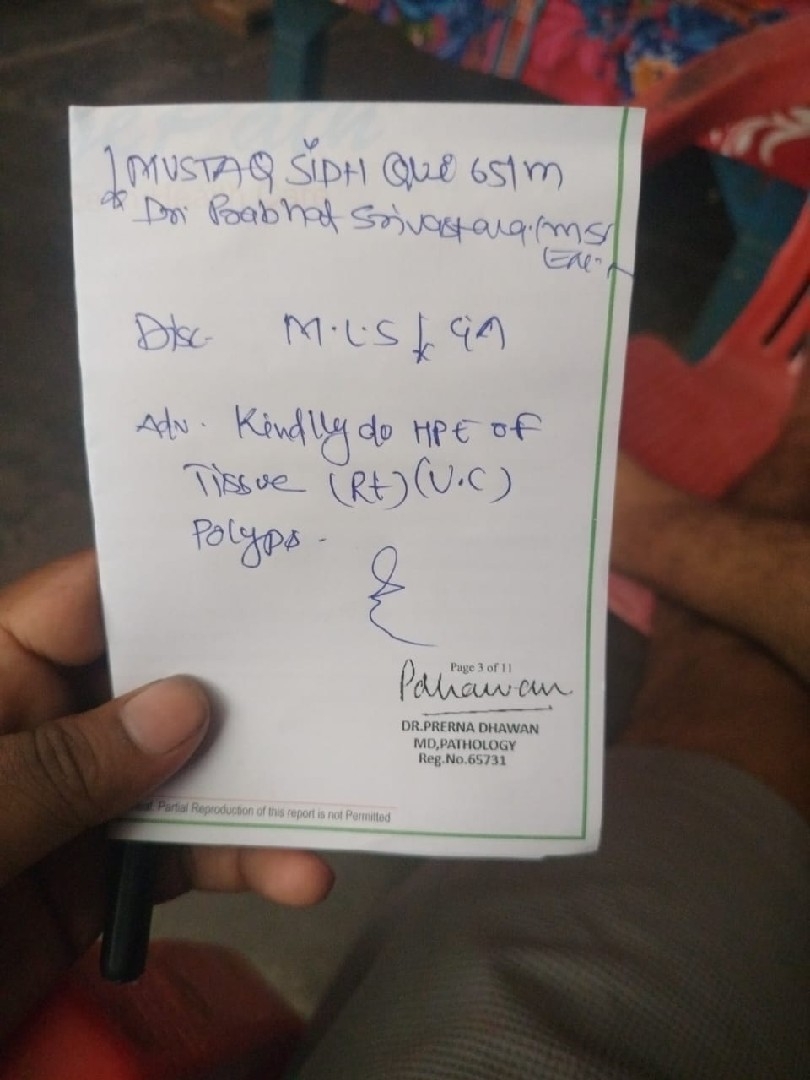 MUSTAQ SIDH QUE 65/m
Dr. Prabhat Srivastava (MS)
Disc M.L.S GA
Adv. Kindlly do HPE of
Tissue (Rt) (V.C)
Polyps.
Page 3 of 11
Pdhawan
DR.PRERNA DHAWAN
MD,PATHOLOGY
Reg.No.65731
Partial Reproduction of this report is not Permitted